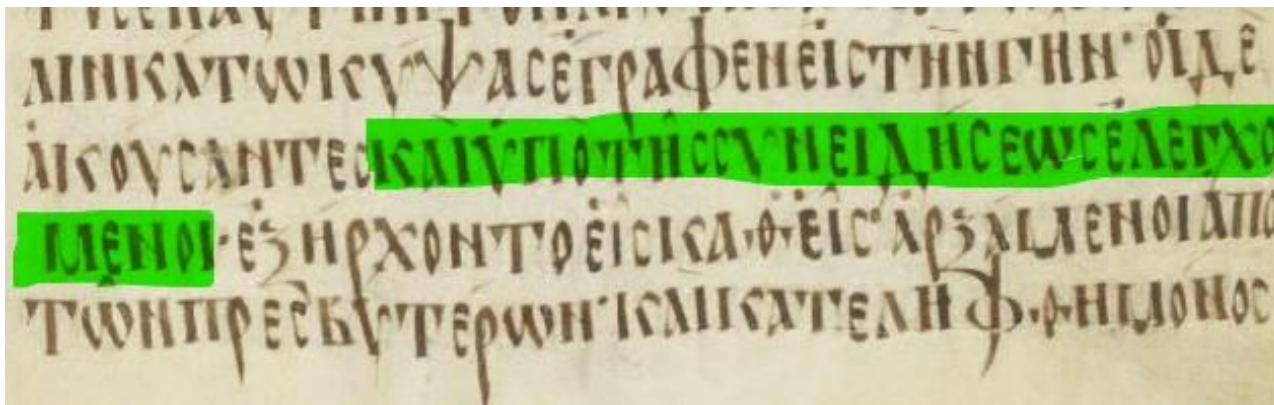 ΛΙΝΚΑΤΩΚΥΨΑΣΕΓΡΑΦΕΝΕΙΣΤΗΝΓΗΝ·ΟΙΔΕ
ΑΚΟΥΣΑΝΤΕΣΚΑΙΥΠΟΤΗΣΣΥΝΕΙΔΗΣΕΩΣΕΛΕΓΧΟ
ΜΕΝΟΙ·ΕΞΗΡΧΟΝΤΟΕΙΣΚΑΘΕΙΣ·ΑΡΞΑΜΕΝΟΙΑΠΟ
ΤΩΝΠΡΕΣΒΥΤΕΡΩΝ·ΚΑΙΚΑΤΕΛΗΦΘΗΜΟΝΟΣ